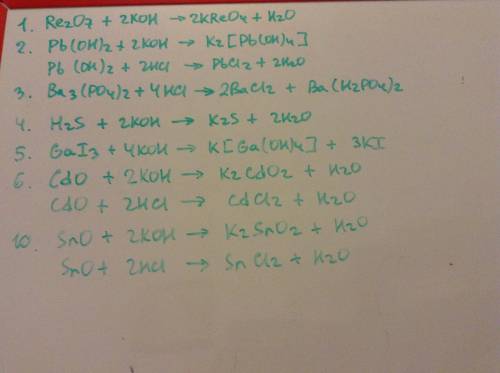 1. Re2O7 + 2KOH → 2KReO4 + H2O
2. Pb(OH)2 + 2KOH → K2[Pb(OH)4]
Pb(OH)2 + 2HCl → PbCl2 + 2H2O
3. Ba3(PO4)2 + 4HCl → 2BaCl2 + Ba(H2PO4)2
4. H2S + 2KOH → K2S + 2H2O
5. GaI3 + 4KOH → K[Ga(OH)4] + 3KI
6. CdO + 2KOH → K2CdO2 + H2O
CdO + 2HCl → CdCl2 + H2O
10. SnO + 2KOH → K2SnO2 + H2O
SnO + 2HCl → SnCl2 + H2O